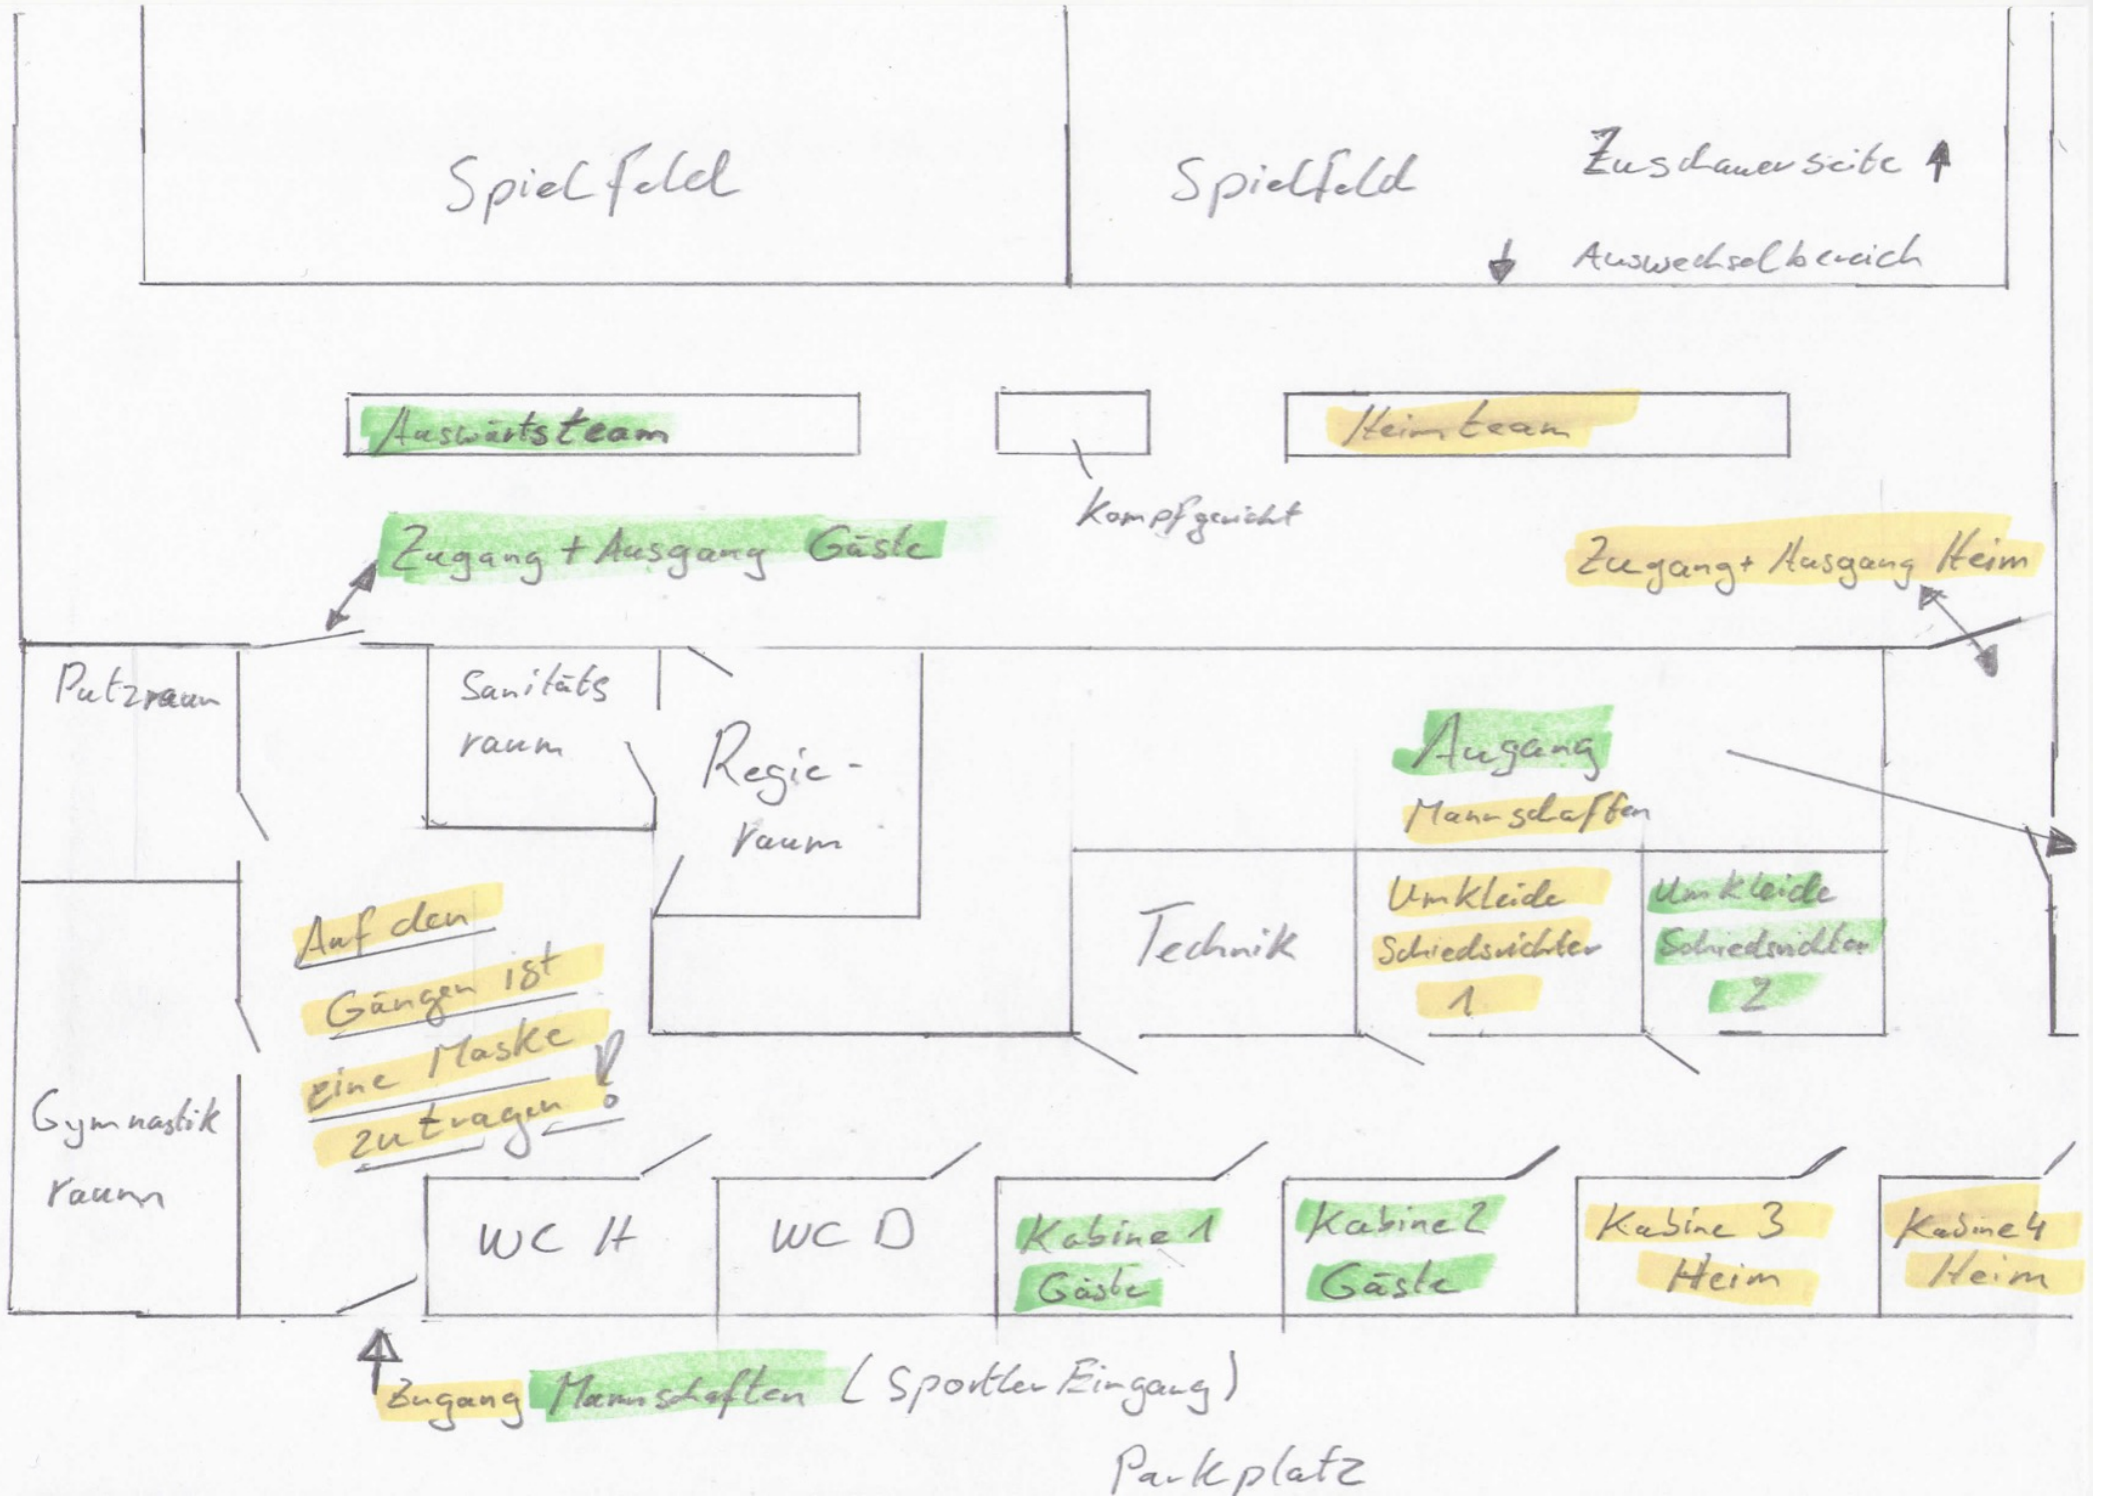 Spielfeld
Spielfeld
Zuschauerseite
Auswechselbereich
Auswärtsteam
Heimteam
Kampfgericht
Zugang + Ausgang Gäste
Zugang + Ausgang Heim
Putzraum
Sanitäts
raum
Regie-
raum
Augang
Mannschaften
Technik
Umkleide
Schiedsrichter
1
Umkleide
Schiedsrichter
2
Auf den
Gängen ist
eine Maske
zu tragen!
Gymnastik
raum
WC H
WC D
Kabine 1
Gäste
Kabine 2
Gäste
Kabine 3
Heim
Kabine 4
Heim
Zugang Mannschaften (Sportler Eingang)
Parkplatz